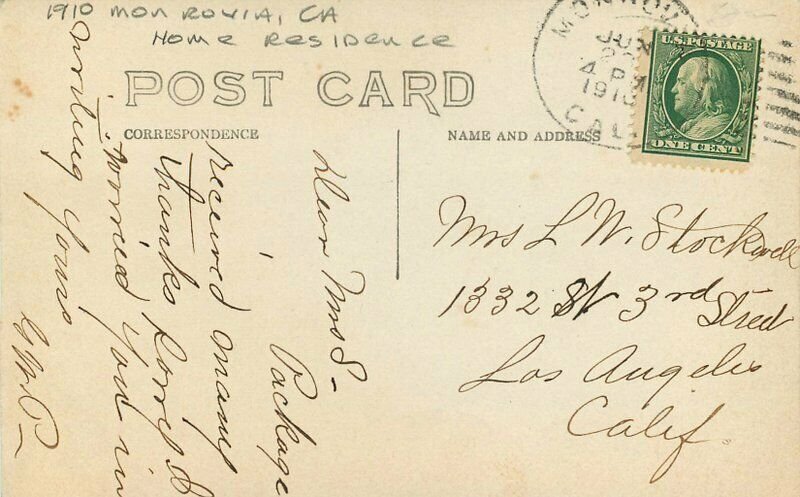 1910 MONROVIA, CA
HOME RESIDENCE
POST CARD
CORRESPONDENCE
NAME AND ADDRESS
MONROV
JUN
4 PM
1910
CAL
U.S. POSTAGE
ONE CENT
Mrs L W. Stockwell
1332 W 3rd Street
Los Angeles
Calif.
Dear Mrs S-
Package
received many
thanks Sorry I
worried you in
writing yours